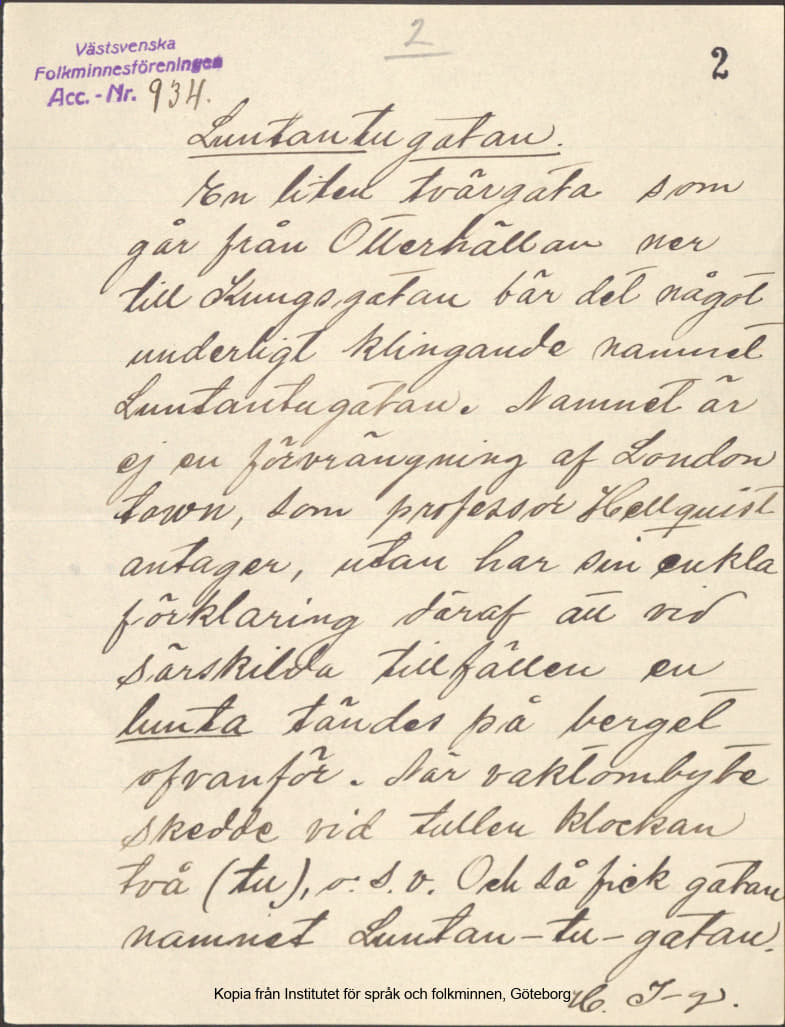 2
2
Västsvenska
Folkminnesföreningen
Acc.-Nr. 934.
Luntantugatan.
En liten tvärgata som
går från Otterhällan ner
till Kungsgatan bär det något
underligt klingande namnet
Luntantugatan. Namnet är
ej en förvrängning af London
town, som professor Hellquist
antager, utan har sin enkla
förklaring däraf att vid
särskilda tillfällen en
lunta tändes på berget
ofvanför. När vaktombyte
skedde vid tullen klockan
två (tu), o. s. v. Och så fick gatan
namnet Luntan-tu-gatan.
Kopia från Institutet för språk och folkminnen, Göteborg